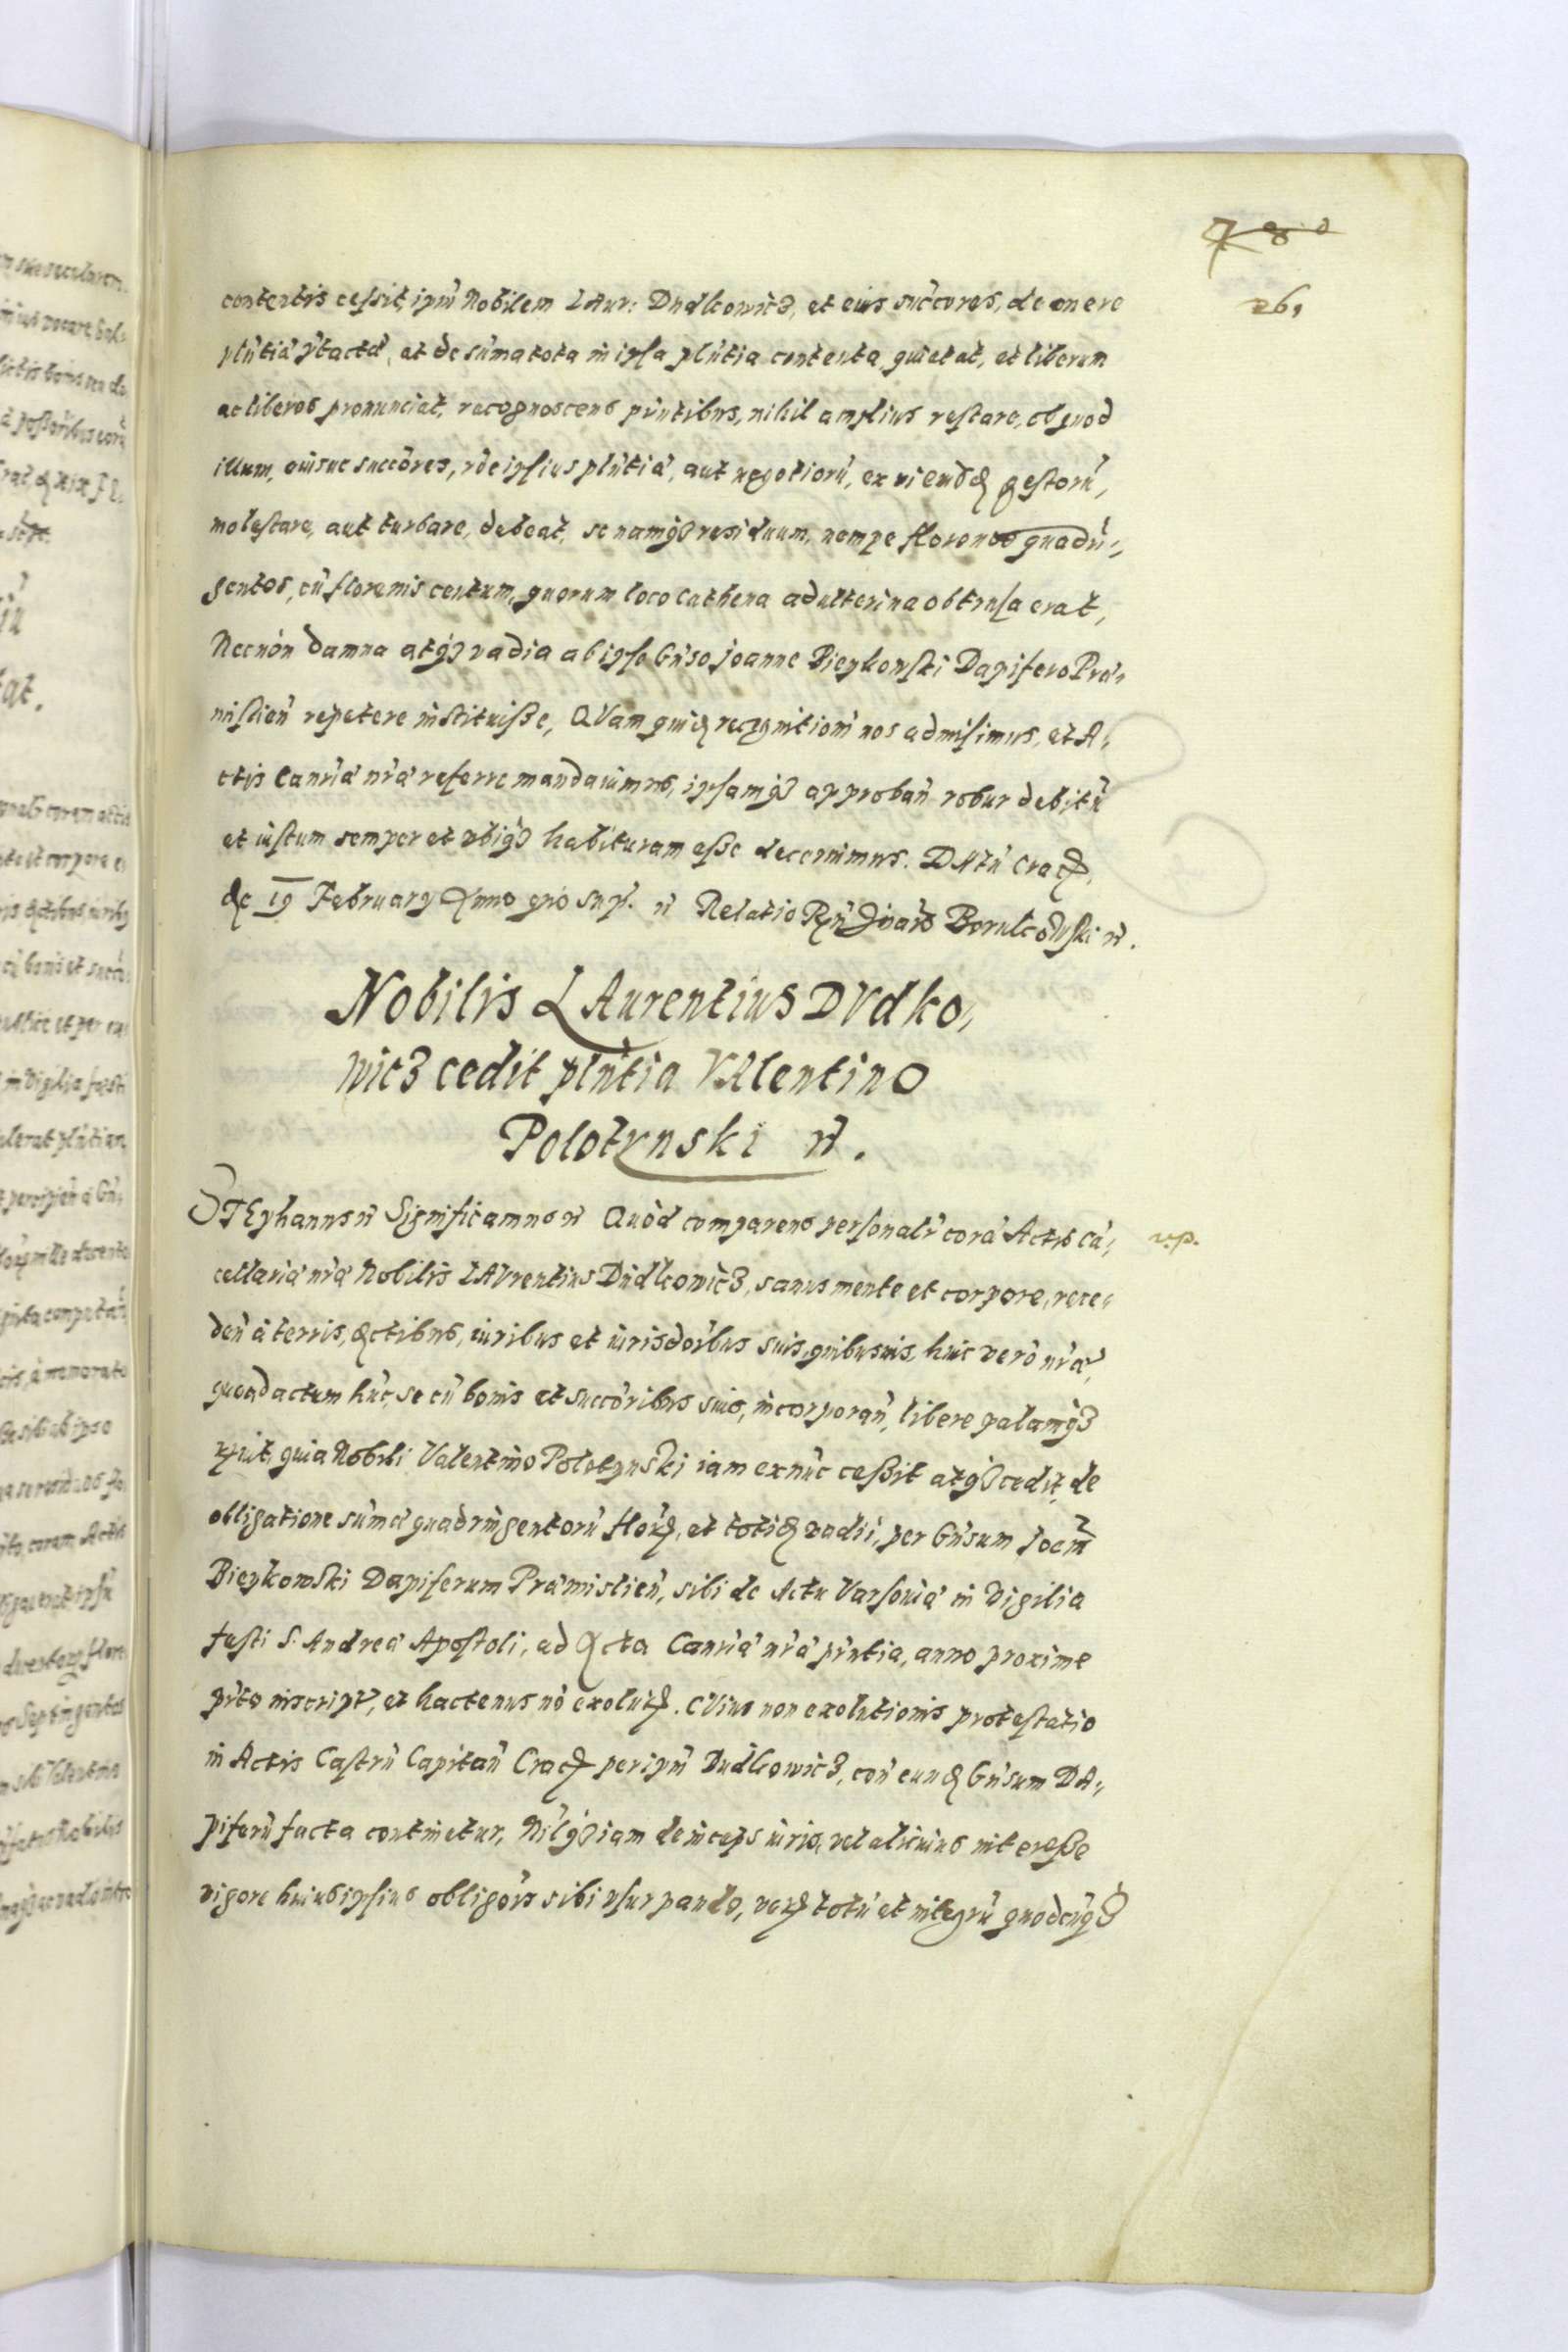 261
contentis cessit, ipm̃ Nobilem LAur: Dudkowicz, et eius succ̃ores, de onere
plñtiæ p̃tactæ, et de sum̃a tota in ipsa plñtia contenta, quietat, et liberum
ac liberos pronunciat, recognoscens pñtibus, nihil amplius restare, ob quod
illum, eiusue succ̃ores, rõe ipsius plñtiæ, aut negotiorũ, ex vi gestorũ,
molestare, aut turbare, debeat, se namq3 residuum, nempe florenos quadrin,
gentos, cũ florenis centum, quorum loco Cathena adulterina obtrusa erat,
Necnòn damna atq3 vadia ab ipso Gñso Joanne Biepkowski Dapifero Præ,
mislieñ repetere instituisse, QVam quidẽ recognitionẽ nos admisimus, et A,
ctis Canr̃iæ nr̃æ referre mandauimus, ipsamq3 approbañ robur debitũ
et iustum semper et vbiq3 habituram esse decernimus. DAtũ Crac̃,
19 February Anno quo sup̃. Relatio Borukowski
Nobilis LAurentius DVdko,
wicz cedit plñtia VAlentino
Polotynski
STEphanus Significamus Quòd comparens personalr̃ corã Actis Cã,
cellariæ nr̃æ Nobilis LAVrentius Dudkowicz, sanus mente et corpore, rece,
deñ à terris, Actibus, iuribus et iurisdõibus suis, quibusuis, huic verò nr̃æ,
quoad actum hũc, se cũ bonis et succ̃oribus suis, incorporañ, libere palamq3
quia Nobili Valentino Polotynski iam exnũc cessit atq3 cedit, de
obligatione sum̃æ quadringentorũ flor̃, et totidẽ vadii, per Gñsum Joem̃
Biepkowski Dapiferum Præmislieñ, sibi de Actu Varsouiæ in Vigilia
festi S. Andreæ Apostoli, ad Acta Canr̃iæ nr̃æ pñtia, anno proxime
pr̃to inscript̃, et hactenus nõ exolut̃. CVius non exolutionis protestatio
in Actis Castrñ Capitañ Crac̃ per ipm̃ Dudkowicz, coñ eundẽ Gñsum DA,
piferũ facta continetur, Nilq3 iam deinceps iuris, vel alicuius interesse
vigore huius ipsius obligõis sibi vsurpando, totũ et integrũ quodcũq3